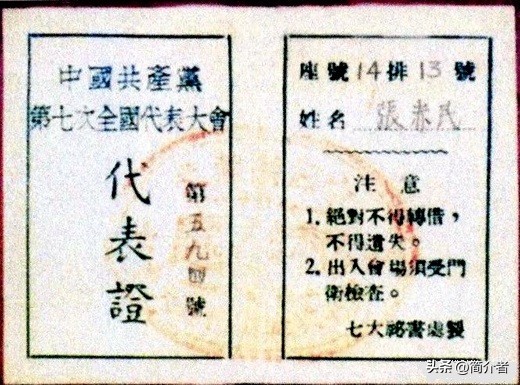 中國共產黨
第七次全國代表大會
代表證
第五九四號
座號14排13號
姓名 張赤民
注意
1. 絕對不得轉借，
不得遺失。
2. 出入會場須受門
衛檢查。
七大祕書處製
头条 @简介者